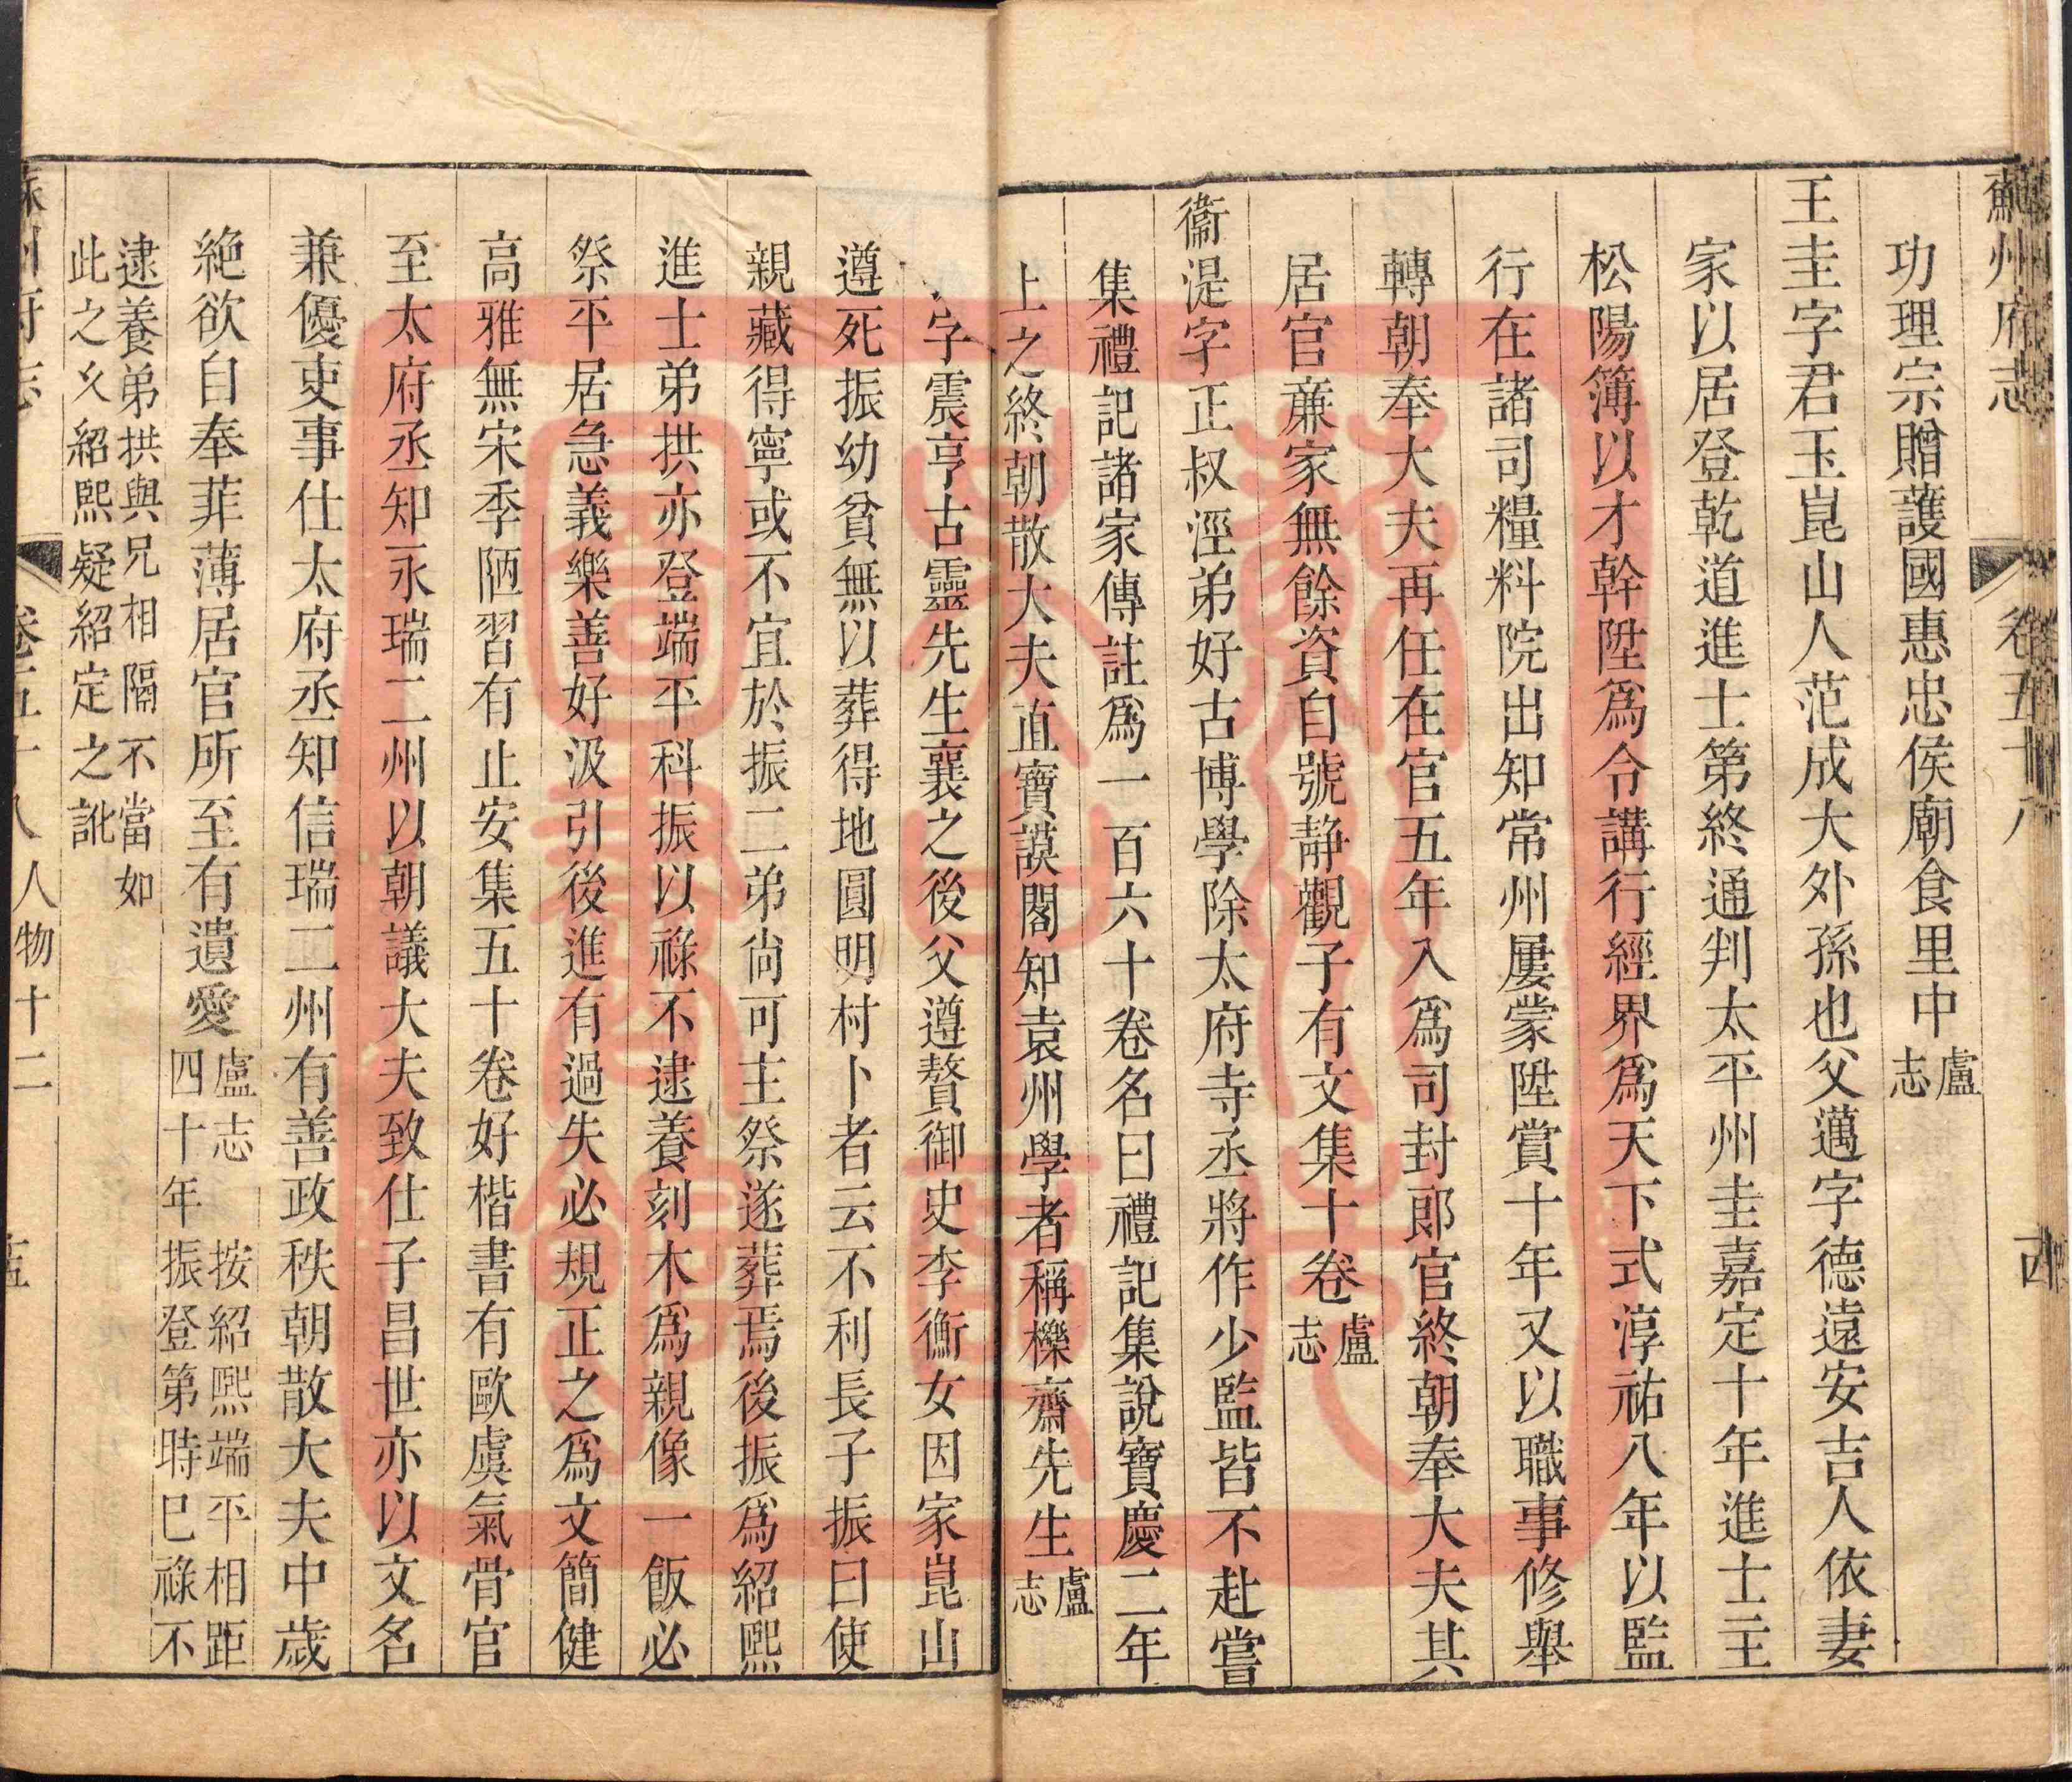 蘇州府志 卷五十八
功理宗贈護國惠忠侯廟食里中盧志
王圭字君玉崑山人范成大外孫也父邁字德遠安吉人依妻
家以居登乾道進士第終通判太平州圭嘉定十年進士主
松陽簿以才幹陞爲令講行經界爲天下式淳祐八年以監
行在諸司糧料院出知常州屢蒙陞賞十年又以職事修舉
轉朝奉大夫再任在官五年入爲司封郎官終朝奉大夫其
居官亷家無餘資自號静觀子有文集十卷盧志
衞湜字正叔涇弟好古博學除太府寺丞將作少監皆不赴嘗
集禮記諸家傳註爲一百六十卷名曰禮記集說寶慶二年
上之終朝散大夫直寶謨閣知袁州學者稱櫟齋先生盧志
字震亨古靈先生襄之後父遵贅御史李衡女因家崑山
遵死振幼貧無以葬得地圓明村卜者云不利長子振曰使
親藏得寧或不宜於振二弟尙可主祭遂葬焉後振爲紹熙
進士弟拱亦登端平科振以祿不逮養刻木爲親像一飯必
祭平居急義樂善好汲引後進有過失必規正之爲文簡健
高雅無宋季陋習有止安集五十卷好楷書有歐虞氣骨官
至太府丞知永瑞二州以朝議大夫致仕子昌世亦以文名
兼優吏事仕太府丞知信瑞二州有善政秩朝散大夫中歲
絶欲自奉菲薄居官所至有遺愛盧志 按紹熙端平相距
四十年振登第時巳祿不
逮養弟拱與兄相隔不當如
此之久紹熙疑紹定之訛
蘇州府志 卷五十八 人物十二